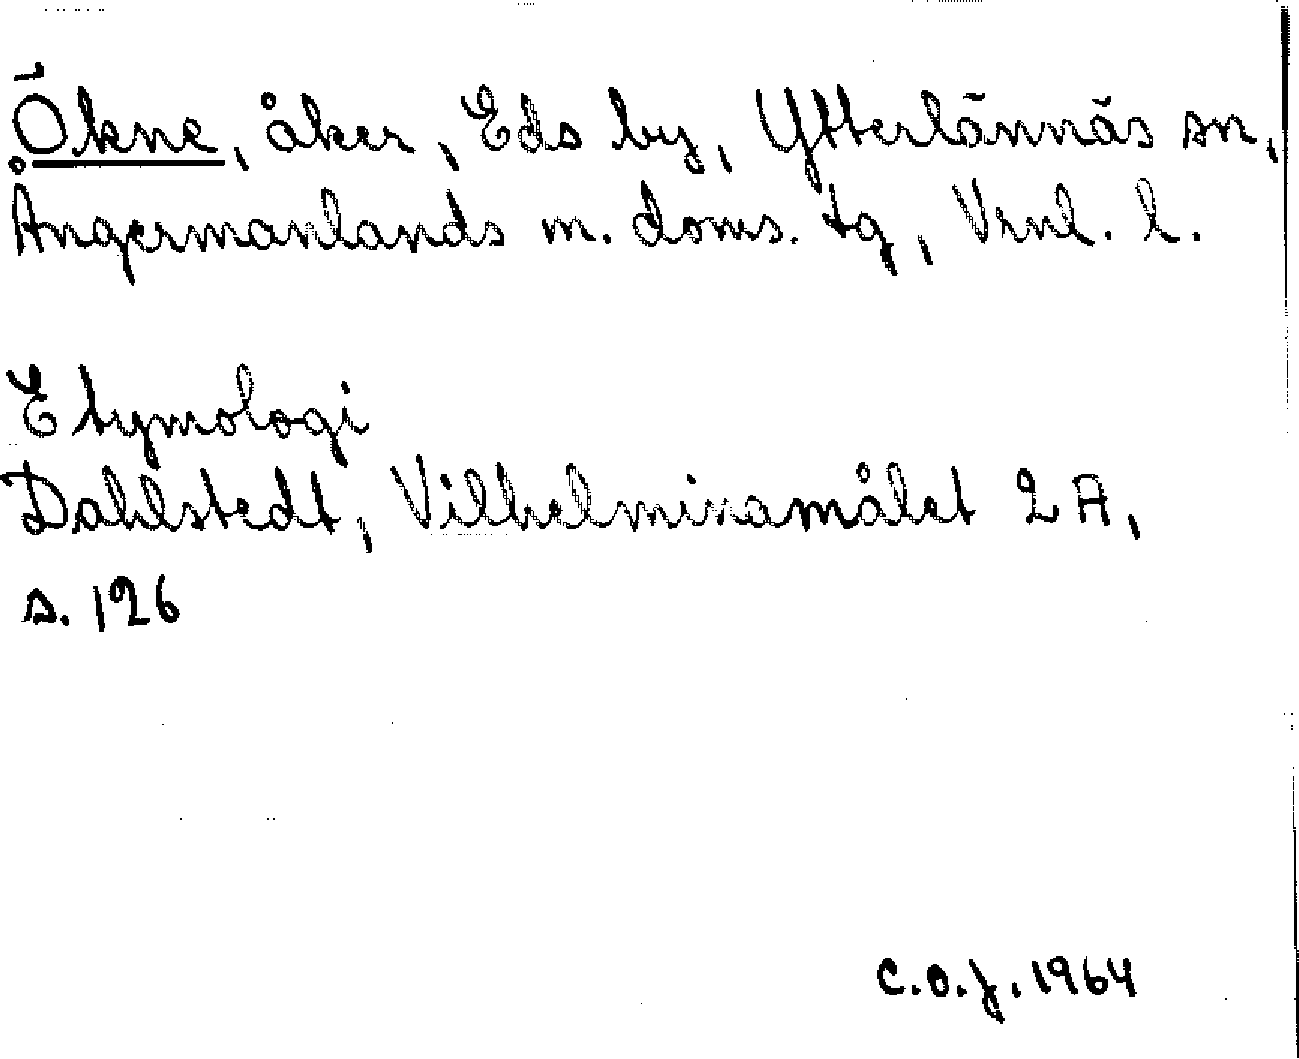 Ökne, åker, Eds by, Ytterlännäs sn,
Ångermanlands m. doms. tg, Vrnl. l.
Etymologi
Dahlstedt, Vilhelminamålet 2A,
s. 126
C.O.J. 1964